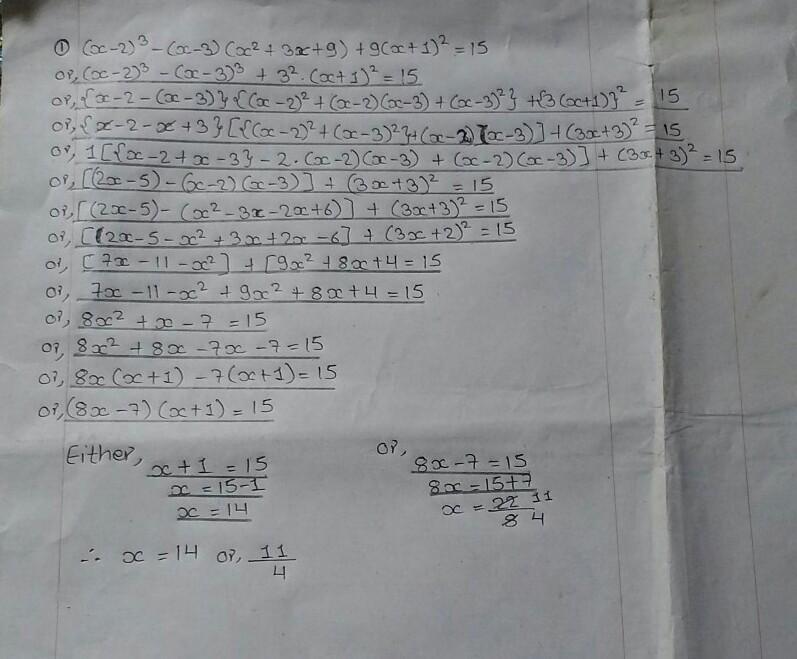 ① (x-2)³ - (x-3) (x² + 3x+9) + 9(x+1)² = 15
or, (x-2)³ - (x-3)³ + 3². (x+1)² = 15
or, {x-2-(x-3)} {(x-2)² + (x-2)(x-3) + (x-3)²} + {3(x+1)}² = 15
or, {x-2-x+3} [{(x-2)² + (x-3)²}+(x-2)(x-3)] + (3x+3)² = 15
or, 1[{x-2+x-3} - 2.(x-2)(x-3) + (x-2)(x-3)] + (3x+3)² = 15
or, [(2x-5) - (x-2)(x-3)] + (3x+3)² = 15
or, [(2x-5) - (x²-3x-2x+6)] + (3x+3)² = 15
or, [(2x-5-x²+3x+2x-6] + (3x+2)² = 15
or, [7x-11-x²] + [9x²+8x+4 = 15
or, 7x-11-x² + 9x² + 8x+4 = 15
or, 8x² + x - 7 = 15
or, 8x² + 8x - 7x - 7 = 15
or, 8x(x+1) - 7(x+1) = 15
or, (8x-7) (x+1) = 15
Either, x+1 = 15
x = 15-1
x = 14
or, 8x-7 = 15
8x = 15+7
x = 22/8 11/4
∴ x = 14 or, 11/4